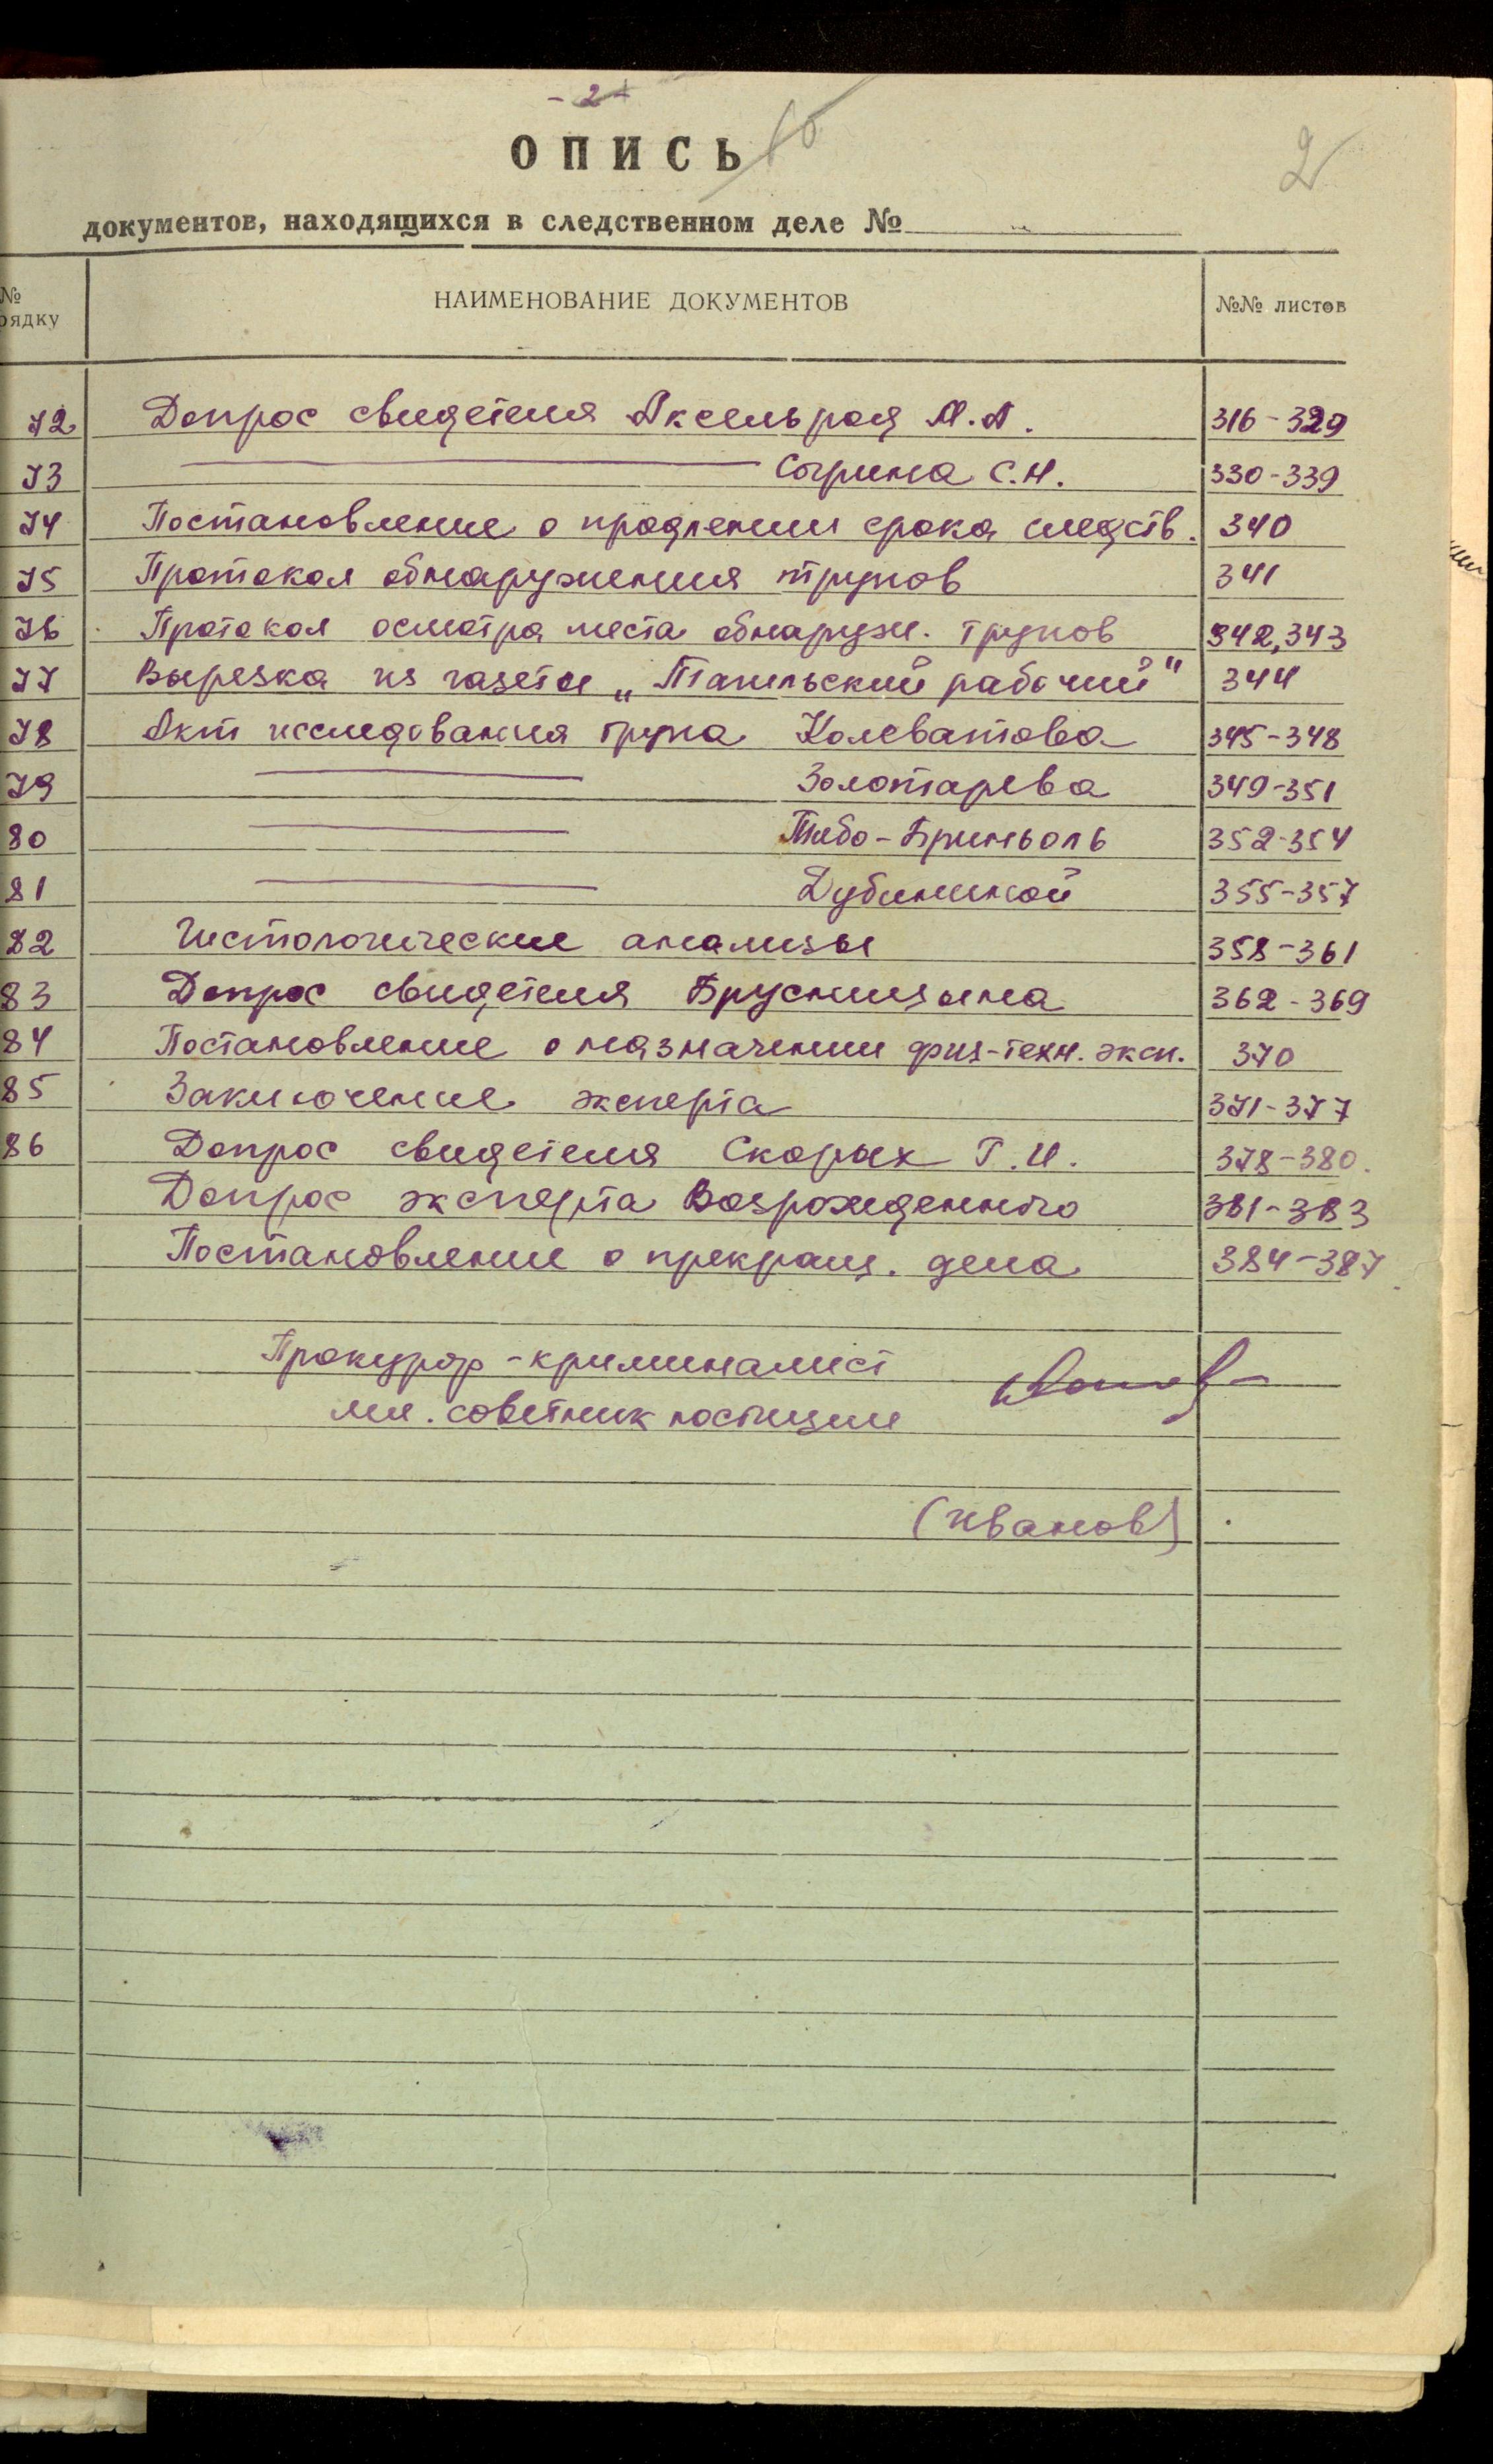 - 2 -
ОПИСЬ
2
документов, находящихся в следственном деле №
№
рядку
НАИМЕНОВАНИЕ ДОКУМЕНТОВ
№№ листов
72 Допрос свидетеля Аксельрод М.А. 316-329
73 Согрина С.Н. 330-339
74 Постановление о продлении срока следств. 340
75 Протокол обнаружения трупов 341
76 Протокол осмотра места обнаруж. трупов 342, 343
77 Вырезка из газеты „Тагильский рабочий" 344
78 Акт исследования трупа Колеватова 345-348
79 Золотарева 349-351
80 Тибо-Бриньоль 352-354
81 Дубининой 355-357
82 Гистологические анализы 358-361
83 Допрос свидетеля Брусницына 362-369
84 Постановление о назначении физ-техн. эксп. 370
85 Заключение эксперта 371-377
86 Допрос свидетеля Скорых Г.И. 378-380.
Допрос эксперта Возрожденного 381-383
Постановление о прекращ. дела 384-387
Прокурор-криминалист
мл. советник юстиции
(Иванов)